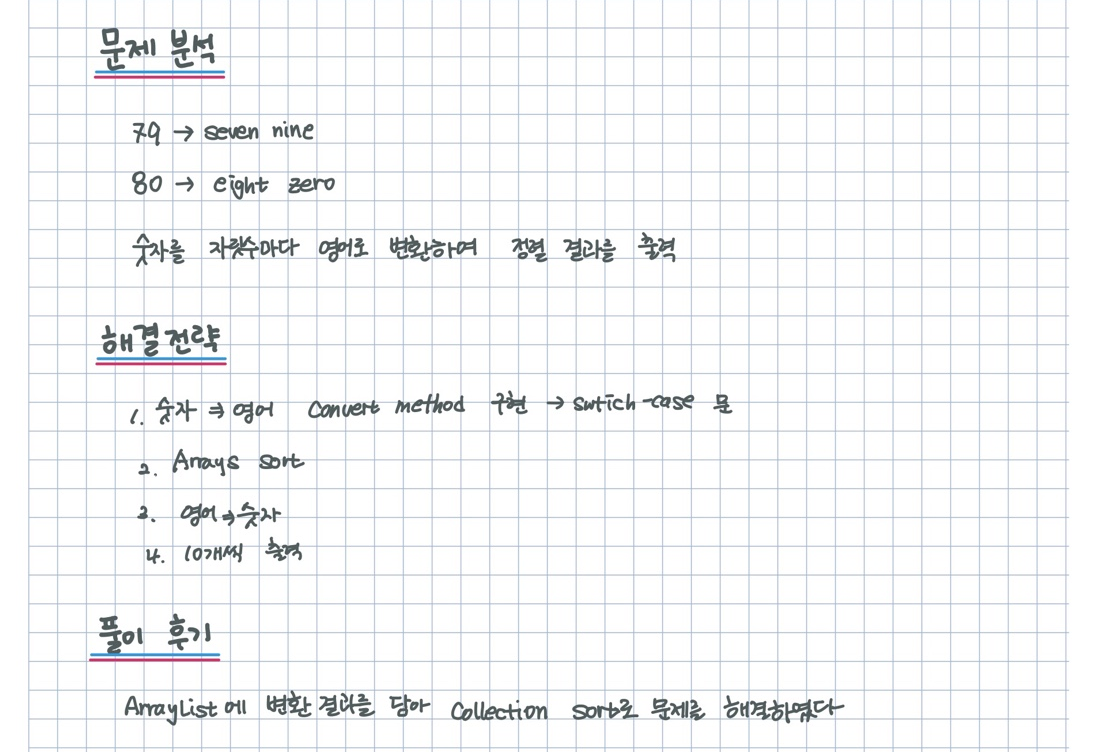 문제 분석
79 → seven nine
80 → eight zero
숫자를 자릿수마다 영어로 변환하여 정렬 결과를 출력
해결전략
1. 숫자 ⇒ 영어 Convert method 구현 → swtich-case 문
2. Arrays sort
3. 영어 ⇒ 숫자
4. 10개씩 출력
풀이 후기
ArrayList에 변환 결과를 담아 Collection sort로 문제를 해결하였다